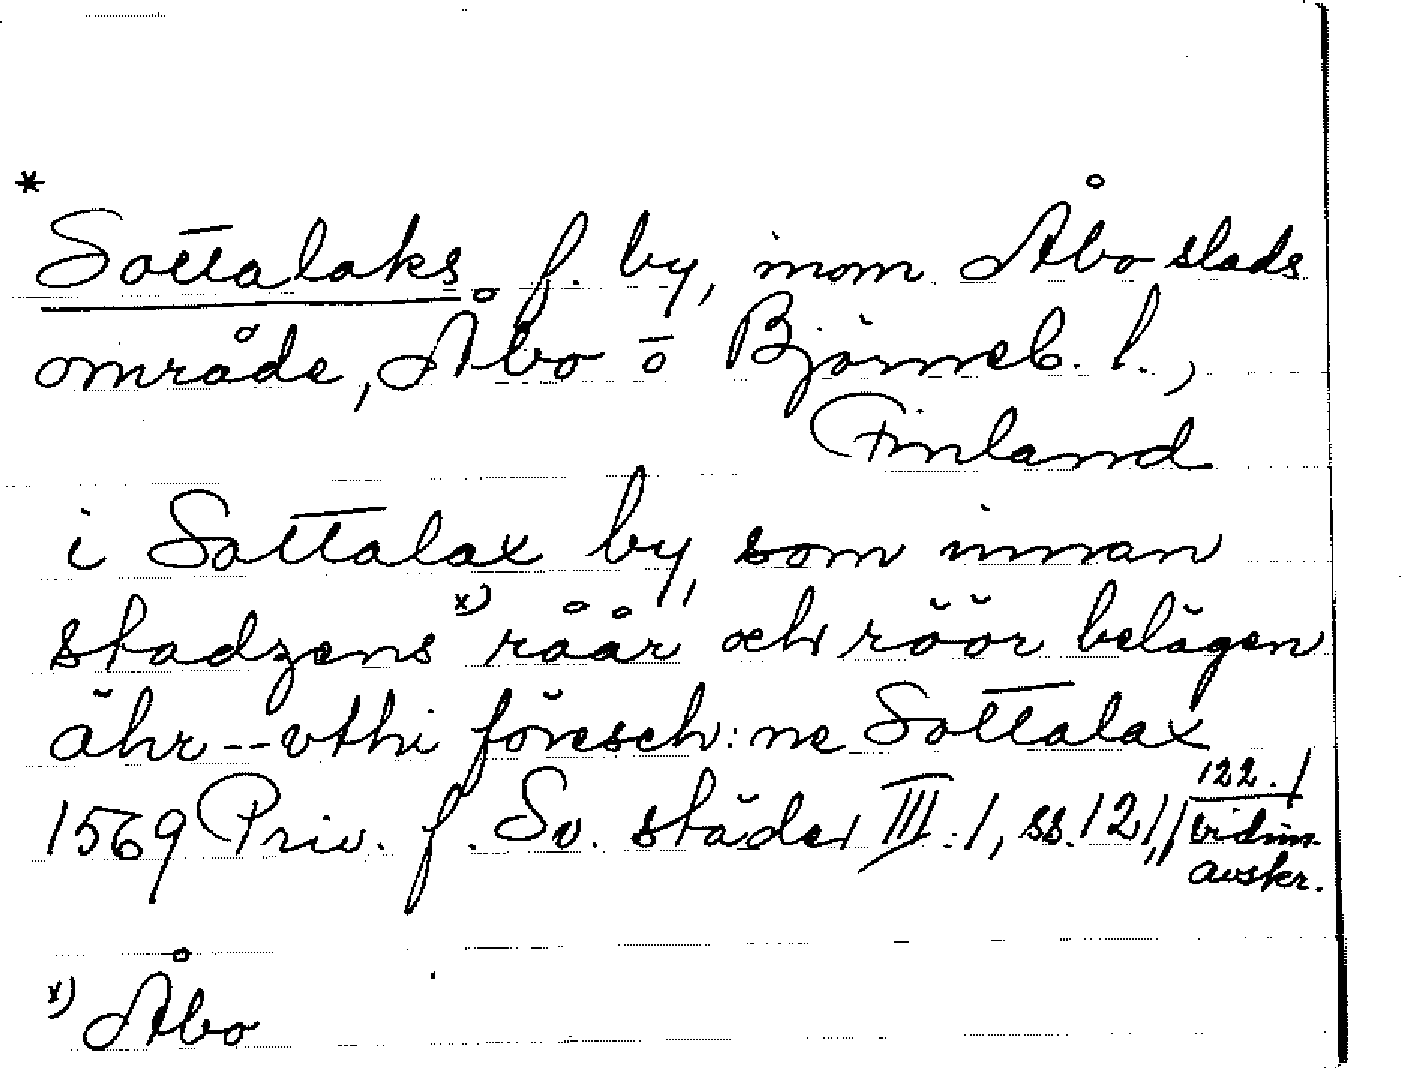 *
Sottalaks f. by, inom Åbo stads
område, Åbo o Björneb. l.,
Finland
i Sottalax by, som innan
stadzens x) råår och röör belägen
ähr -- vthi föresch:ne Sottalax
1569 Priv. f. Sv. städer III:1, ss. 121, 122. /
vidim.
avskr.
x) Åbo